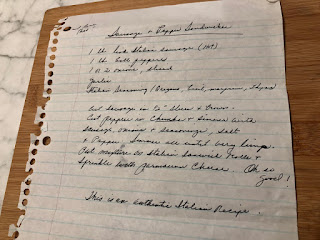 Sausage & Pepper Sandwiches
1 lb link Italian sausage (Hot)
1 lb Bell peppers
1 or 2 onions, sliced
Garlic
Italian Seasoning (Oregano, Basil, marjoram, Thyme)
Cut Sausage in ½" Slices & Brown.
Cut peppers in Chunks & Simmer with
Sausage, onions & seasonings, salt
& Pepper. Simmer all until very limp.
Put mixture in Italian Sandwich Rolls &
Sprinkle with parmesan Cheese. Oh so
good!
This is an authentic Italian Recipe.